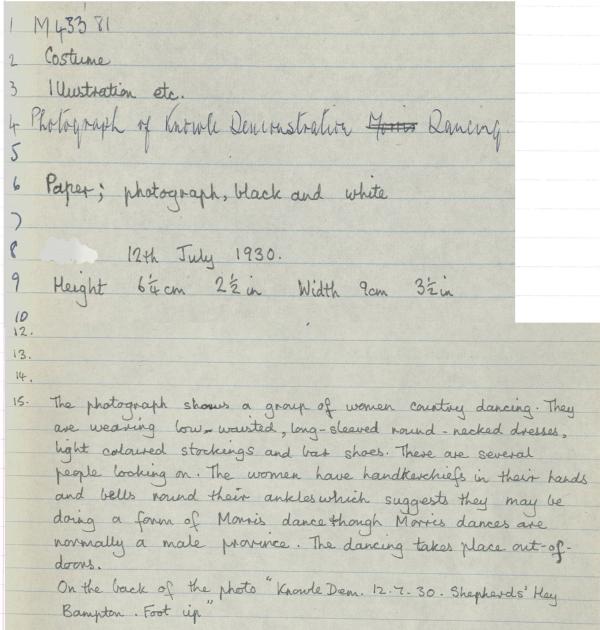 1 M 433 81
2 Costume
3 Illustration etc.
4 Photograph of Knowle Demonstration Morris Dancing
5
6 Paper; photograph, black and white
7
8 12th July 1930.
9 Height 6¼cm 2½in Width 9cm 3½in
10
12.
13.
14.
15. The photograph shows a group of women country dancing. They
are wearing low-waisted, long-sleeved round-necked dresses,
light coloured stockings and bar shoes. There are several
people looking on. The women have handkerchiefs in their hands
and bells round their ankles which suggests they may be
doing a form of Morris dance though Morris dances are
normally a male province. The dancing takes place out-of-
doors.
On the back of the photo "Knowle Dem. 12.7.30. Shepherds' Hey
Bampton. Foot up"